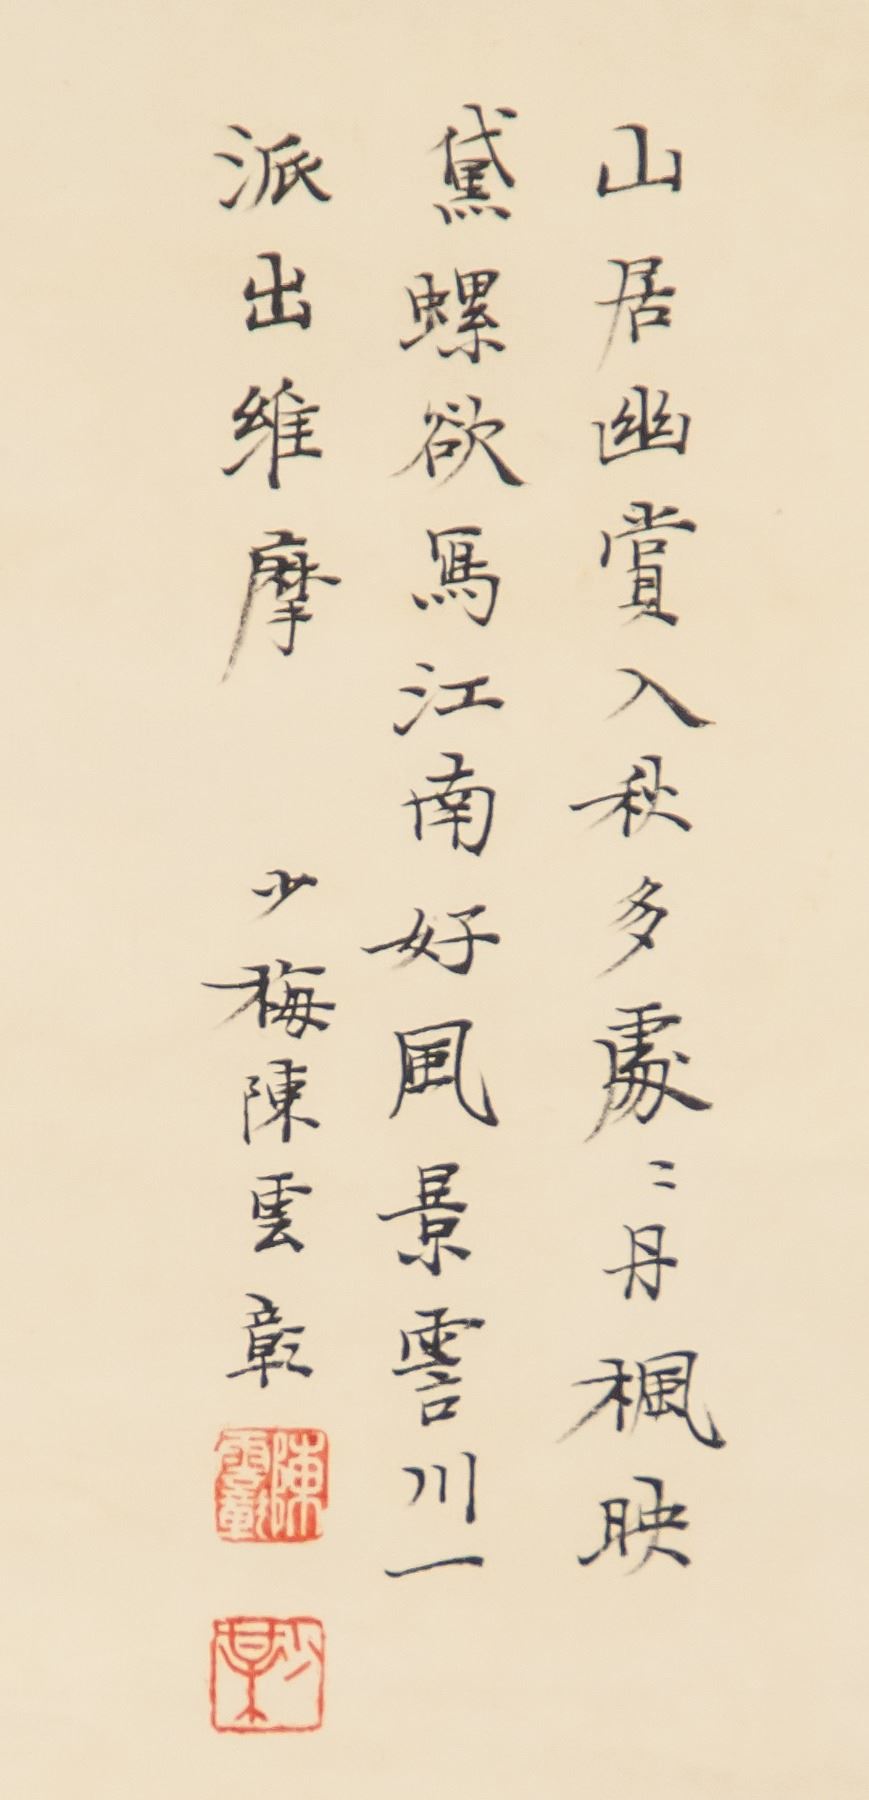 山居幽賞入秋多處〻丹楓映
黛螺欲寫江南好風景霅川一
派出維摩
少梅陳雲彰
陳雲彰
少某